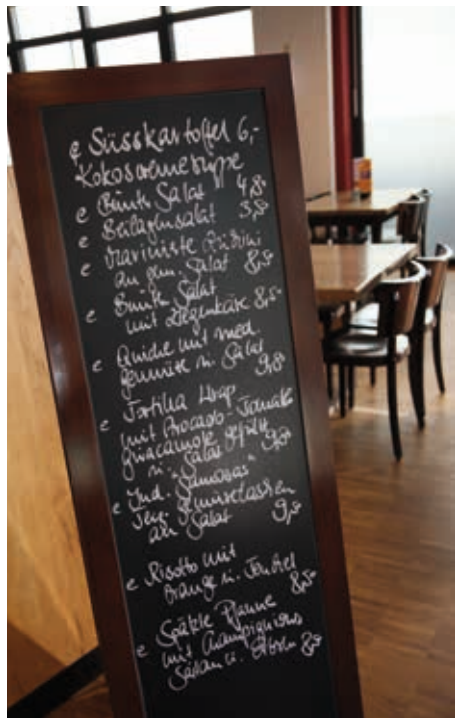 € Süsskartoffel 6,-
Kokoscremesuppe
€ Bunter Salat 4,80
€ Beilagensalat 3,80
€ Marinierte Zucchini
an gem. Salat 8,50
€ Bunter Salat
mit Ziegenkäse 8,50
€ Quiche mit med.
Gemüse u. Salat
9,80
€ Tortilla Wrap
mit Avocado-Tomate
Guacamole gefüllt
u. Salat 9,80
€ Ind. "Samosas"
Veg. Gemüsetaschen
an Salat 9,50
€ Risotto mit
Orange u. Fenchel
8,50
€ Spätzle Pfanne
mit Champignons
u. 8,50